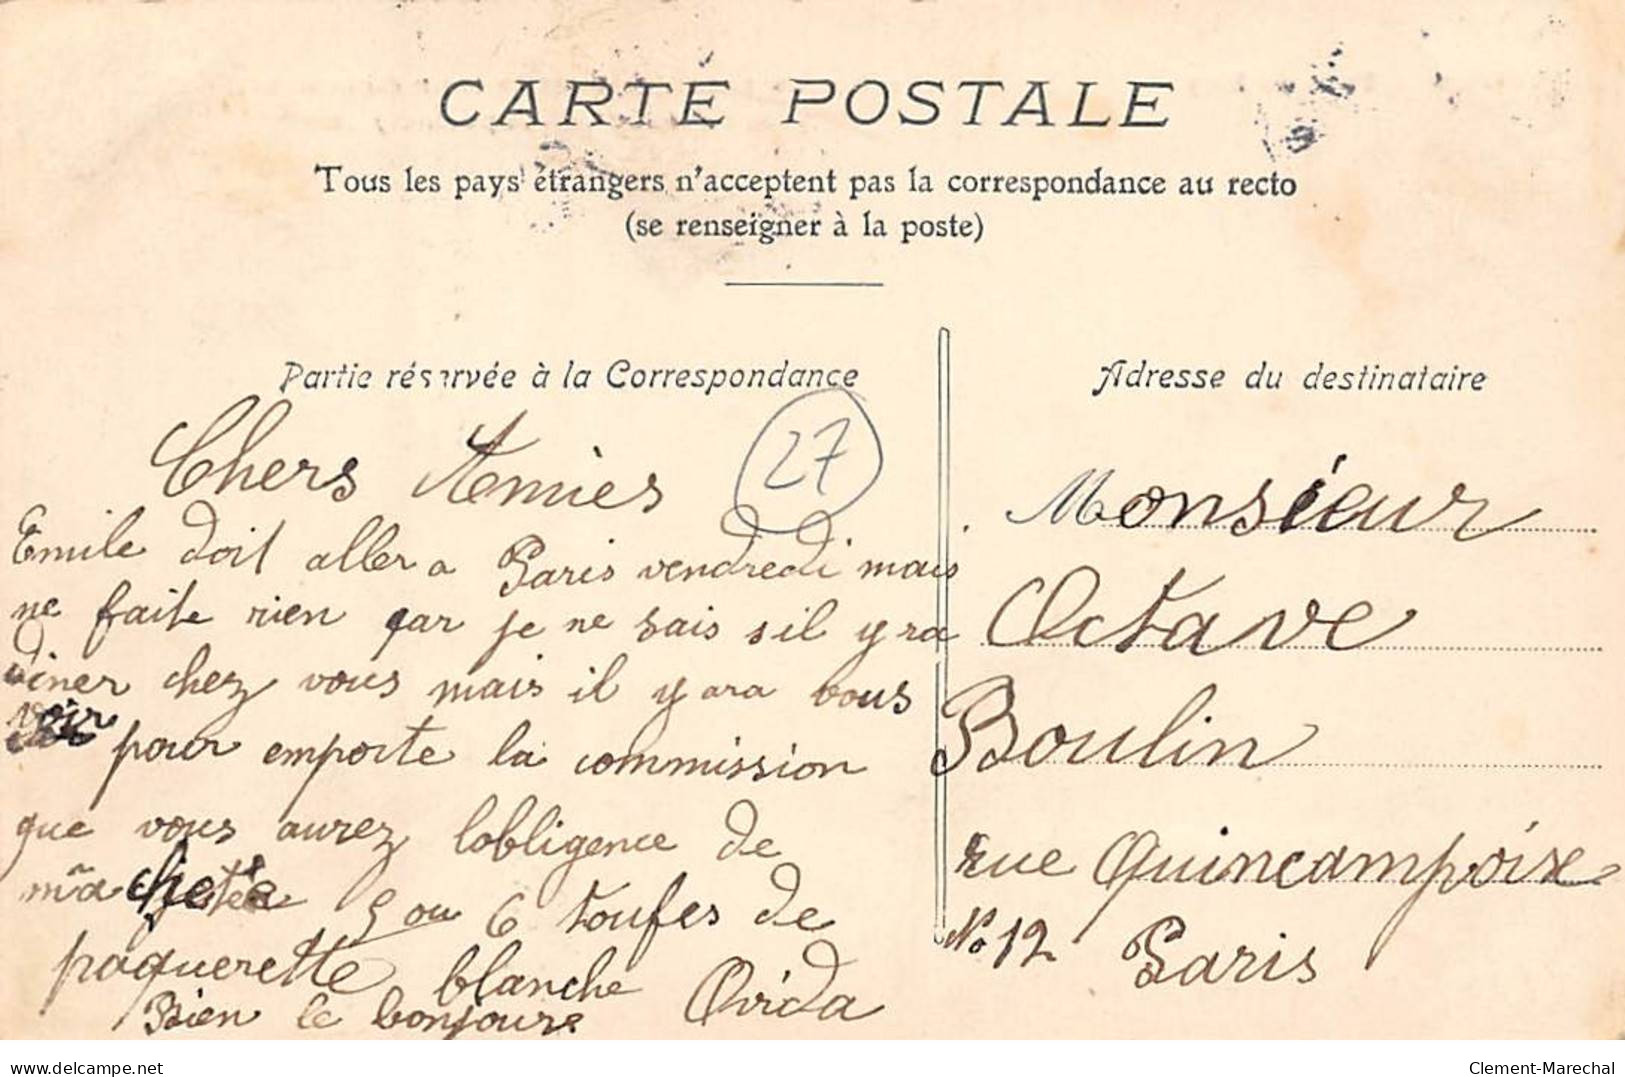 CARTE POSTALE
Tous les pays étrangers n'acceptent pas la correspondance au recto
(se renseigner à la poste)
Partie réservée à la Correspondance
27
Chers Amies
Emile doit aller a Paris vendredi mais
ne faite rien car je ne sais s il y ra
diner chez vous mais il y ara vous
voir pour emporte la commission
que vous aurez lobligence de
5 ou 6 toufes de
paquerette blanche
Bien le bonjoure Ovida
Adresse du destinataire
Monsieur
Octave
Boulin
rue Quincampoix
No 12 Paris
delcampe.net
Clement-Marechal